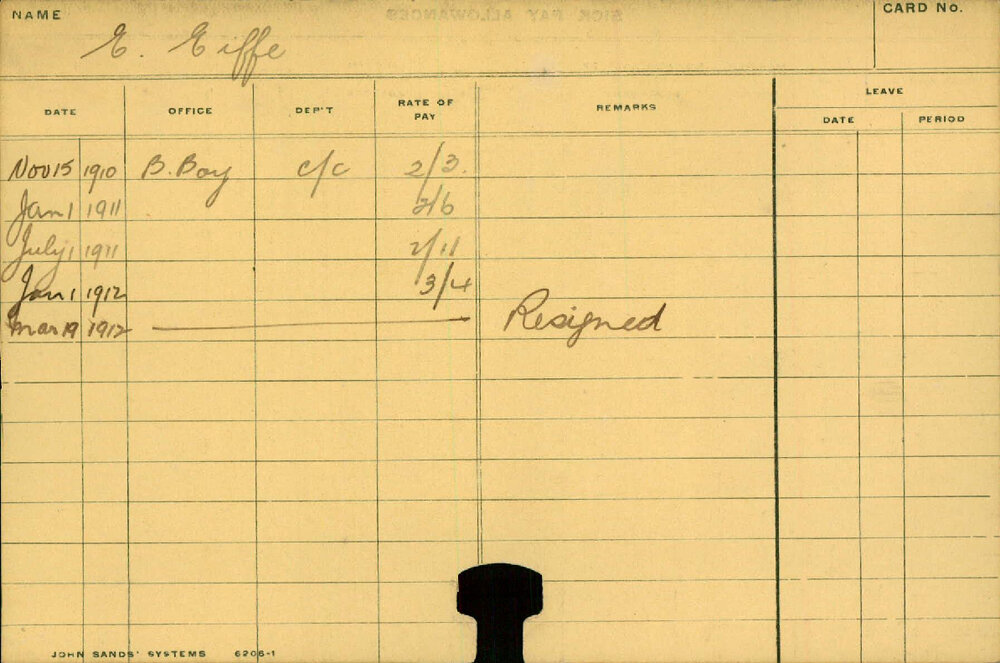 NAME E. Eiffe CARD No.
DATE OFFICE DEP'T RATE OF PAY REMARKS LEAVE
DATE PERIOD
Nov 15 1910 B. Boy c/c 2/3.
Jan 1 1911 2/6
July 1 1911 2/11
Jan 1 1912 3/4
Mar 19 1912 Resigned
JOHN SANDS' SYSTEMS 6206-1